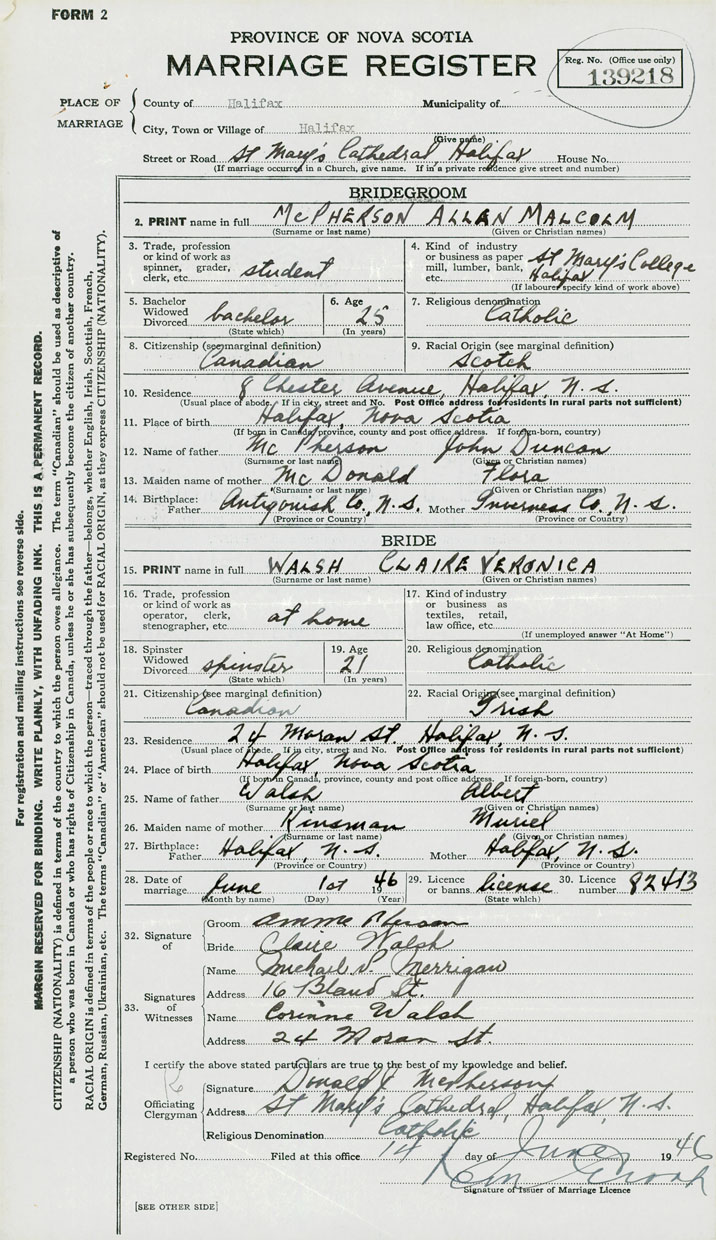 FORM 2
PROVINCE OF NOVA SCOTIA
MARRIAGE REGISTER
Reg. No. (Office use only)
139218
PLACE OF MARRIAGE
County of Halifax Municipality of
City, Town or Village of Halifax
(Give name)
Street or Road St Mary's Cathedral, Halifax House No.
(If marriage occurred in a Church, give name. If in a private residence give street and number)
BRIDEGROOM
2. PRINT name in full McPHERSON ALLAN MALCOLM
(Surname or last name) (Given or Christian names)
3. Trade, profession or kind of work as spinner, grader, clerk, etc. student
4. Kind of industry or business as paper mill, lumber, bank, etc. St Mary's College Halifax
(If labourer specify kind of work above)
5. Bachelor Widowed Divorced bachelor
(State which)
6. Age 25
(In years)
7. Religious denomination Catholic
8. Citizenship (see marginal definition) Canadian
9. Racial Origin (see marginal definition) Scotch
10. Residence 8 Chester Avenue, Halifax, N. S.
(Usual place of abode. If in city, street and No. Post Office address for residents in rural parts not sufficient)
11. Place of birth Halifax, Nova Scotia
(If born in Canada, province, county and post office address. If foreign-born, country)
12. Name of father McPherson John Duncan
(Surname or last name) (Given or Christian names)
13. Maiden name of mother McDonald Flora
(Surname or last name) (Given or Christian names)
14. Birthplace: Father Antigonish Co., N. S. Mother Inverness Co., N. S.
(Province or Country) (Province or Country)
BRIDE
15. PRINT name in full WALSH CLAIRE VERONICA
(Surname or last name) (Given or Christian names)
16. Trade, profession or kind of work as operator, clerk, stenographer, etc. at home
17. Kind of industry or business as textiles, retail, law office, etc.
(If unemployed answer "At Home")
18. Spinster Widowed Divorced spinster
(State which)
19. Age 21
(In years)
20. Religious denomination Catholic
21. Citizenship (see marginal definition) Canadian
22. Racial Origin (see marginal definition) Irish
23. Residence 24 Moran St. Halifax, N. S.
(Usual place of abode. If in city, street and No. Post Office address for residents in rural parts not sufficient)
24. Place of birth Halifax, Nova Scotia
(If born in Canada, province, county and post office address. If foreign-born, country)
25. Name of father Walsh Albert
(Surname or last name) (Given or Christian names)
26. Maiden name of mother Kinsman Muriel
(Surname or last name) (Given or Christian names)
27. Birthplace: Father Halifax, N. S. Mother Halifax, N. S.
(Province or Country) (Province or Country)
28. Date of marriage June 1st 1946
(Month by name) (Day) (Year)
29. Licence or banns license
(State which)
30. Licence number 82413
32. Signature of
Groom
Bride Claire Walsh
33. Signatures of Witnesses
Name Michael D. Merrigan
Address 16 Bland St.
Name Corinne Walsh
Address 24 Moran St.
I certify the above stated particulars are true to the best of my knowledge and belief.
Officiating Clergyman
Signature Donald J McPherson
Address St Mary's Cathedral, Halifax, N. S.
Religious Denomination Catholic
Registered No. Filed at this office 14 day of June 1946
Signature of Issuer of Marriage Licence
[SEE OTHER SIDE]
For registration and mailing instructions see reverse side.
MARGIN RESERVED FOR BINDING. WRITE PLAINLY, WITH UNFADING INK. THIS IS A PERMANENT RECORD.
CITIZENSHIP (NATIONALITY) is defined in terms of the country to which the person owes allegiance. The term "Canadian" should be used as descriptive of
a person who was born in Canada or who has rights of Citizenship in Canada, unless he or she has subsequently become the citizen of another country.
RACIAL ORIGIN is defined in terms of the people or race to which the person—traced through the father—belongs, whether English, Irish, Scottish, French,
German, Russian, Ukrainian, etc. The terms "Canadian" or "American" should not be used for RACIAL ORIGIN, as they express CITIZENSHIP (NATIONALITY).